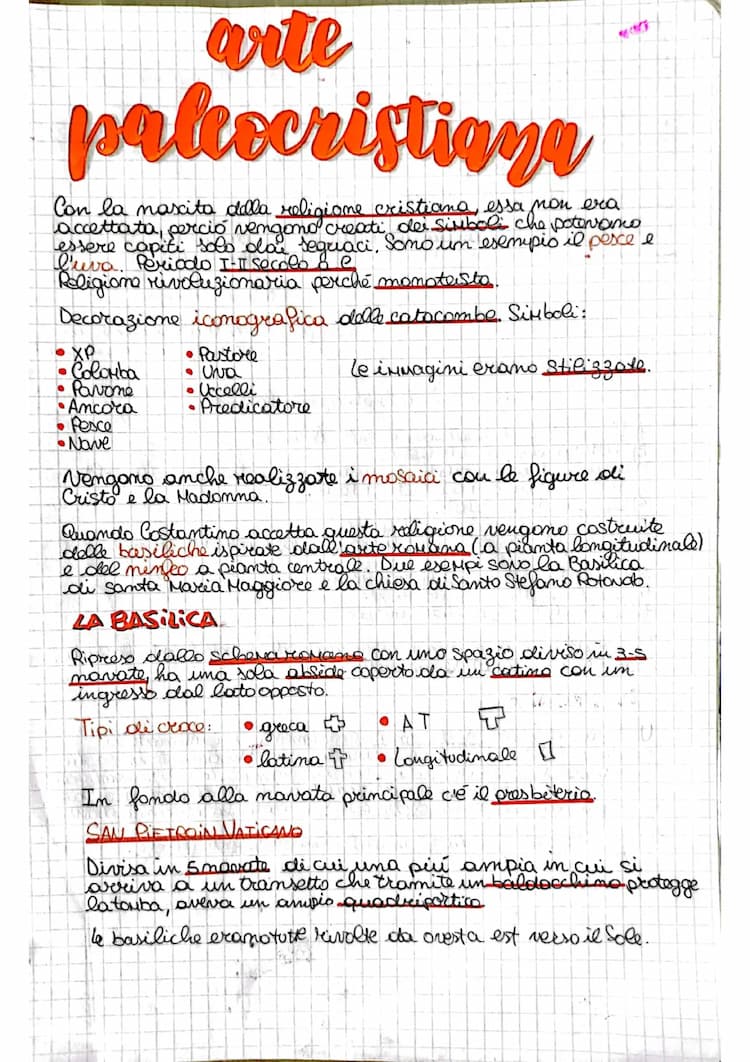 arte
paleocristiana
Con la nascita della religione cristiana, essa non era
accettata, perció vengono creati dei simboli che potevano
essere capiti solo dai seguaci. Sono un esempio il pesce e
l'uva. Periodo I-II secolo a C
Religione rivoluzionaria perché monoteista.
Decorazione iconografica delle catacombe. Simboli:
• XP
• Colomba
• Pavone
• Ancora
• Pesce
• Nave
• Pastore
• Uva
• Uccelli
• Predicatore
le immagini erano stilizzate.
Vengono anche realizzate i mosaici con le figure di
Cristo e la Madonna.
Quando Costantino accetta questa religione vengono costruite
delle basiliche ispirate dall'arte romana (a pianta longitudinale)
e del ninfeo a pianta centrale. Due esempi sono la Basilica
di santa Maria Maggiore e la chiesa di Santo Stefano Rotondo.
LA BASILICA
Ripreso dallo schema romano con uno spazio diviso in 3-5
navate, ha una sola abside coperto da un catino con un
ingresso dal lato opposto.
Tipi di croce:
• greca
• latina
• A T
• Longitudinale
In fondo alla navata principale c'é il presbiterio.
SAN PIETRO IN VATICANO
Divisa in 5 navate di cui una piú ampia in cui si
arriva a un transetto che tramite un baldacchino protegge
la tomba, aveva un ampio quadriportico
le basiliche erano tutte rivolte da ovest a est verso il Sole.